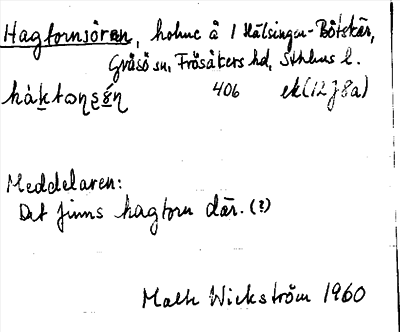 Hagtornsören, holme å I Hälsingen-Båtskär,
Gräsö sn, Frösåkers hd, Sthlms l.
håktoɳʂǿɳ 406 ek (12J8a)
Meddelaren:
Det finns hagtorn där. (?)
Mats Wickström 1960